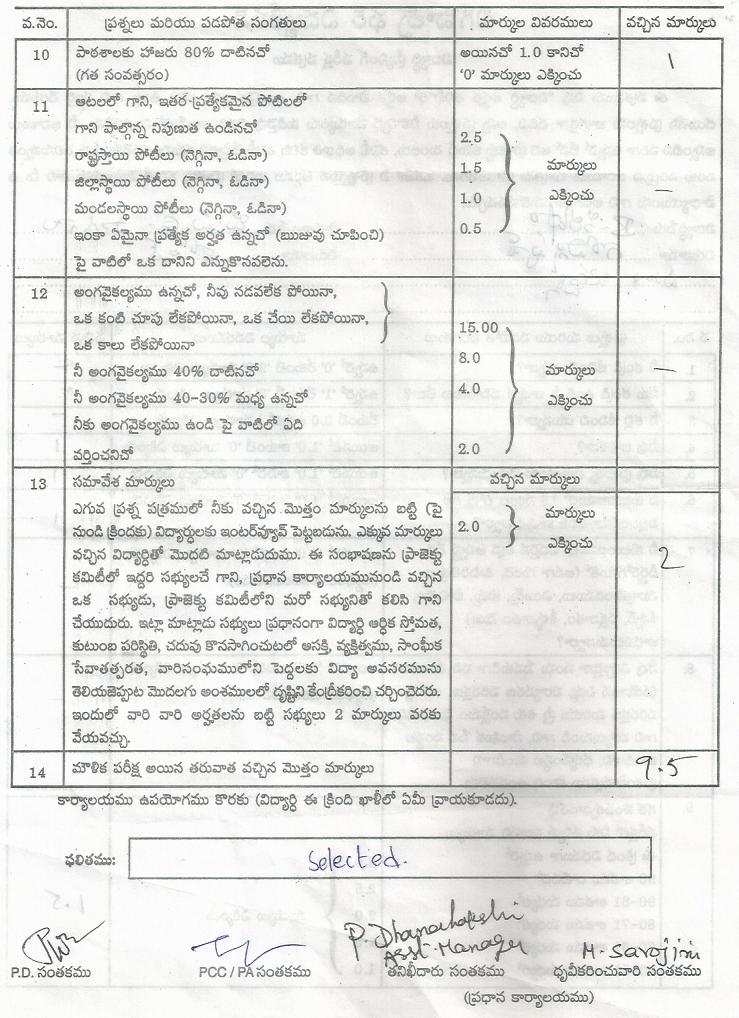 వ.నెం. ప్రశ్నలు మరియు పడపోత సంగతులు మార్కుల వివరములు వచ్చిన మార్కులు
10 పాఠశాలకు హాజరు 80% దాటినచో అయినచో 1.0 కానిచో 1
(గత సంవత్సరం) '0' మార్కులు ఎక్కించు
11 ఆటలలో గాని, ఇతర ప్రత్యేకమైన పోటిలలో
గాని పాల్గొన్న నిపుణుత ఉండినచో
రాష్ట్రస్తాయి పోటీలు (నెగ్గినా, ఓడినా) 2.5
జిల్లాస్థాయి పోటీలు (నెగ్గినా, ఓడినా) 1.5 మార్కులు
మండలస్థాయి పోటీలు (నెగ్గినా, ఓడినా) 1.0 ఎక్కించు —
ఇంకా ఏమైనా ప్రత్యేక అర్హత ఉన్నచో (ఋజువు చూపించి) 0.5
పై వాటిలో ఒక దానిని ఎన్నుకొనవలెను.
12 అంగవైకల్యము ఉన్నచో, నీవు నడవలేక పోయినా,
ఒక కంటి చూపు లేకపోయినా, ఒక చేయి లేకపోయినా, 15.00
ఒక కాలు లేకపోయినా
నీ అంగవైకల్యము 40% దాటినచో 8.0 మార్కులు —
నీ అంగవైకల్యము 40-30% మధ్య ఉన్నచో 4.0 ఎక్కించు
నీకు అంగవైకల్యము ఉండి పై వాటిలో ఏది
వర్తించనిచో 2.0
13 సమావేశ మార్కులు వచ్చిన మార్కులు
ఎగువ ప్రశ్న పత్రములో నీకు వచ్చిన మొత్తం మార్కులను బట్టి (పై మార్కులు
నుండి క్రిందకు) విద్యార్థులకు ఇంటర్‌వ్యూవ్ పెట్టబడును. ఎక్కువ మార్కులు 2.0 ఎక్కించు
వచ్చిన విద్యార్థితో మొదటి మాట్లాడుదుము. ఈ సంభాషణను ప్రాజెక్టు 2
కమిటీలో ఇద్దరి సభ్యులచే గాని, ప్రధాన కార్యాలయమునుండి వచ్చిన
ఒక సభ్యుడు, ప్రాజెక్టు కమిటీలోని మరో సభ్యునితో కలిసి గాని
చేయుదురు. ఇట్లా మాట్లాడు సభ్యులు ప్రధానంగా విద్యార్థి ఆర్ధిక స్తోమత,
కుటుంబ పరిస్థితి, చదువు కొనసాగించుటలో ఆసక్తి, వ్యక్తిత్వము, సాంఘీక
సేవాతత్పరత, వారిసంఘములోని పెద్దలకు విద్యా అవసరమును
తెలియజెప్పుట మొదలగు అంశములలో దృష్టిని కేంద్రీకరించి చర్చించెదరు.
ఇందులో వారి వారి అర్హతలను బట్టి సభ్యులు 2 మార్కులు వరకు
వేయవచ్చు.
14 మౌళిక పరీక్ష అయిన తరువాత వచ్చిన మొత్తం మార్కులు 9.5
కార్యాలయము ఉపయోగము కొరకు (విద్యార్థి ఈ క్రింది ఖాళీలో ఏమీ వ్రాయకూడదు).
ఫలితము: Selected.
P. Dhanalakshmi
Asst-Manager M. Sarojini
P.D. సంతకము PCC / PA సంతకము తనిఖీదారు సంతకము ధృవీకరించువారి సంతకము
(ప్రధాన కార్యాలయము)